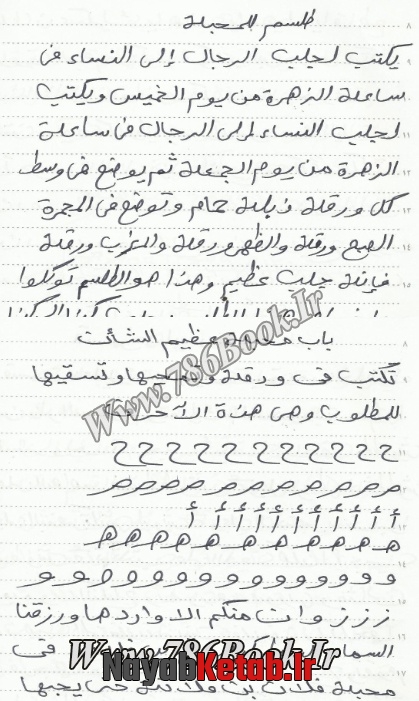 طلسم للمحبة
يكتب لجلب الرجال إلى النساء في
ساعة الزهرة من يوم الخميس ويكتب
لجلب النساء إلى الرجال في ساعة
الزهرة من يوم الجمعة ثم يوضع في وسط
كل ورقة زبلة حمام وتوضع في المجمرة
الصبح ورقة والظهر ورقة والمغرب ورقة
فإنه جلب عظيم وهذا هو الطلسم توكلوا
باب عظيم الشأن
تكتب في ورقة وتمحيها وتسقيها
للمطلوب وهي هذه الأحرف
ح ح ح ح ح ح ح ح ح ح ح
ص ص ص ص ص ص ص ص ص ص ص
أ أ أ أ أ أ أ أ أ أ أ
ه ه ه ه ه ه ه ه ه ه ه
و و و و و و و و و و و و و
ز ز ز وان منكم الا واردها ورزقنا
السما في
محبة فلان بن فلانة حتى يحبها
Www.786Book.Ir
Www.786Book.Ir
NayabKetab.Ir